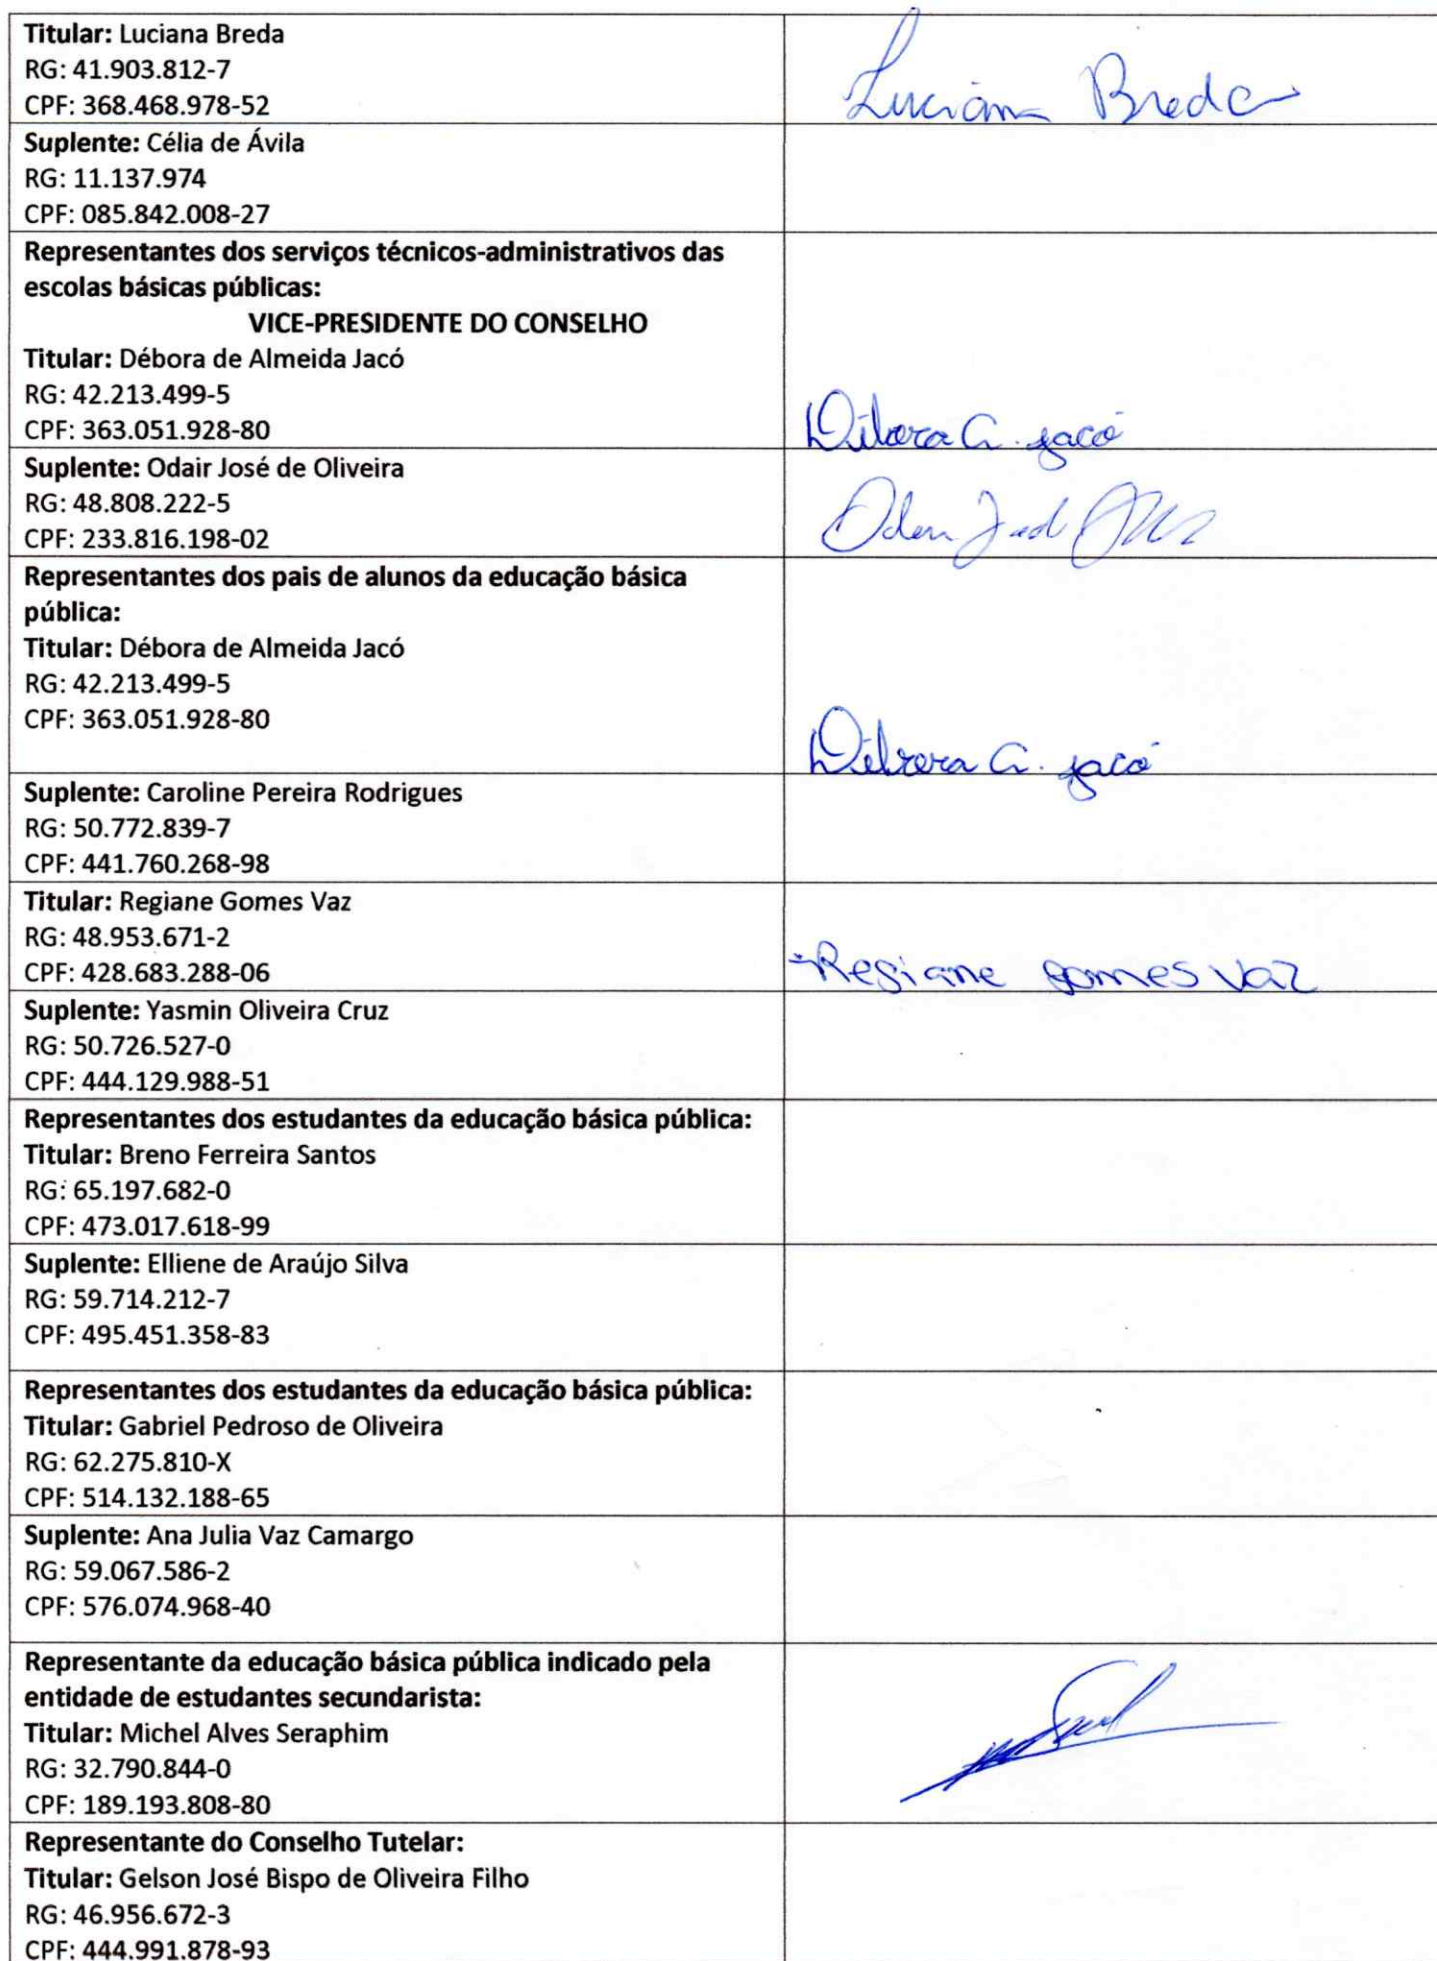 Titular: Luciana Breda
RG: 41.903.812-7
CPF: 368.468.978-52
Luciana Breda
Suplente: Célia de Ávila
RG: 11.137.974
CPF: 085.842.008-27
Representantes dos serviços técnicos-administrativos das
escolas básicas públicas:
VICE-PRESIDENTE DO CONSELHO
Titular: Débora de Almeida Jacó
RG: 42.213.499-5
CPF: 363.051.928-80
Débora A. Jacó
Suplente: Odair José de Oliveira
RG: 48.808.222-5
CPF: 233.816.198-02
Representantes dos pais de alunos da educação básica
pública:
Titular: Débora de Almeida Jacó
RG: 42.213.499-5
CPF: 363.051.928-80
Débora A. Jacó
Suplente: Caroline Pereira Rodrigues
RG: 50.772.839-7
CPF: 441.760.268-98
Titular: Regiane Gomes Vaz
RG: 48.953.671-2
CPF: 428.683.288-06
Regiane gomes vaz
Suplente: Yasmin Oliveira Cruz
RG: 50.726.527-0
CPF: 444.129.988-51
Representantes dos estudantes da educação básica pública:
Titular: Breno Ferreira Santos
RG: 65.197.682-0
CPF: 473.017.618-99
Suplente: Elliene de Araújo Silva
RG: 59.714.212-7
CPF: 495.451.358-83
Representantes dos estudantes da educação básica pública:
Titular: Gabriel Pedroso de Oliveira
RG: 62.275.810-X
CPF: 514.132.188-65
Suplente: Ana Julia Vaz Camargo
RG: 59.067.586-2
CPF: 576.074.968-40
Representante da educação básica pública indicado pela
entidade de estudantes secundarista:
Titular: Michel Alves Seraphim
RG: 32.790.844-0
CPF: 189.193.808-80
Representante do Conselho Tutelar:
Titular: Gelson José Bispo de Oliveira Filho
RG: 46.956.672-3
CPF: 444.991.878-93